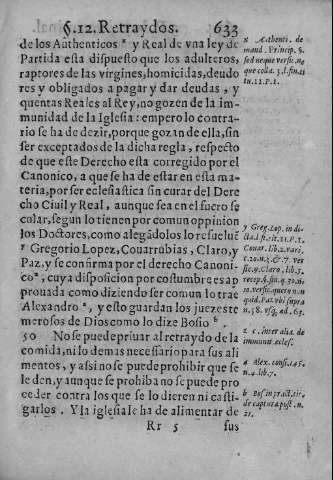 §.12. Retraydos. 633
de los Authenticos x y Real de vna ley de
Partida esta dispuesto que los adulteros,
raptores de las virgines, homicidas, deudo
res y obligados a pagar y dar deudas, y
quentas Reales al Rey, no gozen de la im-
munidad de la Iglesia: empero lo contra-
rio se ha de dezir, porque gozan de ella, sin
ser exceptados de la dicha regla, respecto
de que este Derecho esta corregido por el
Canonico, a que se ha de estar en esta ma
teria, por ser eclesiastica sin curar del Dere
cho Ciuil y Real, aunque sea en el fuero se
colar, segun lo tienen por comun oppinion
los Doctores, como alegádolos lo resueluē
y Gregorio Lopez, Couarrubias, Claro, y
Paz, y se confirma por el derecho Canoni-
co z, cuya disposicion por costumbre es ap
prouada como diziendo ser comun lo trae
Alexandro a, y esto guardan los juezes te
merosos de Dios como lo dize Bosio b.
50 No se puede priuar al retraydo de la
comida, ni lo demas necessario para sus ali
mentos, y assi no se puede prohibir que se
le den, y aunque se prohiba no se puede pro
ceder contra los que se lo dieren ni casti-
garlos. Y la iglesia le ha de alimentar de
Rr 5 sus
x Authenti. de
maud. Princip. §.
sed neque versic. ne
que colla. 3. l. fin. ti
tu. 11. P. 1.
y Greg. Lop. in di-
cta l. fi. tit. 11. P. 1.
Couar. lib. 2. vari.
c. 20. n. 3. & 7. ver
sic. 9. Claro, lib. 5.
recep. §. fin. q. 30. n.
10. versic. quero nun
quid. Paz vbi supra
n. 58. vsq. ad. 63.
z c. inter alia. de
immunit. eccles.
a Alex. consi. 145.
n. 4. lib. 7.
b Bos in pract. tit.
de captura post. n.
21.